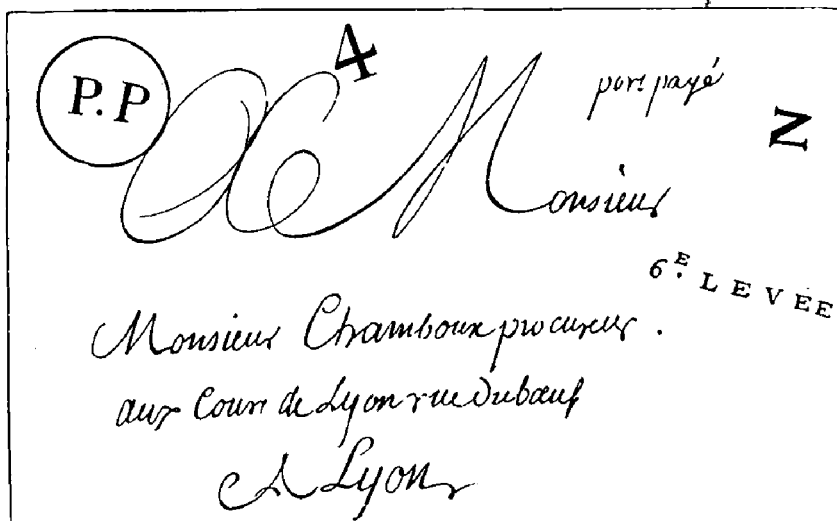 P.P
4
port payé
N
A Monsieur
6E. LEVÉE
Monsieur Chamboux procureur.
aux Cours de Lyon rue Dubœuf
A Lyon